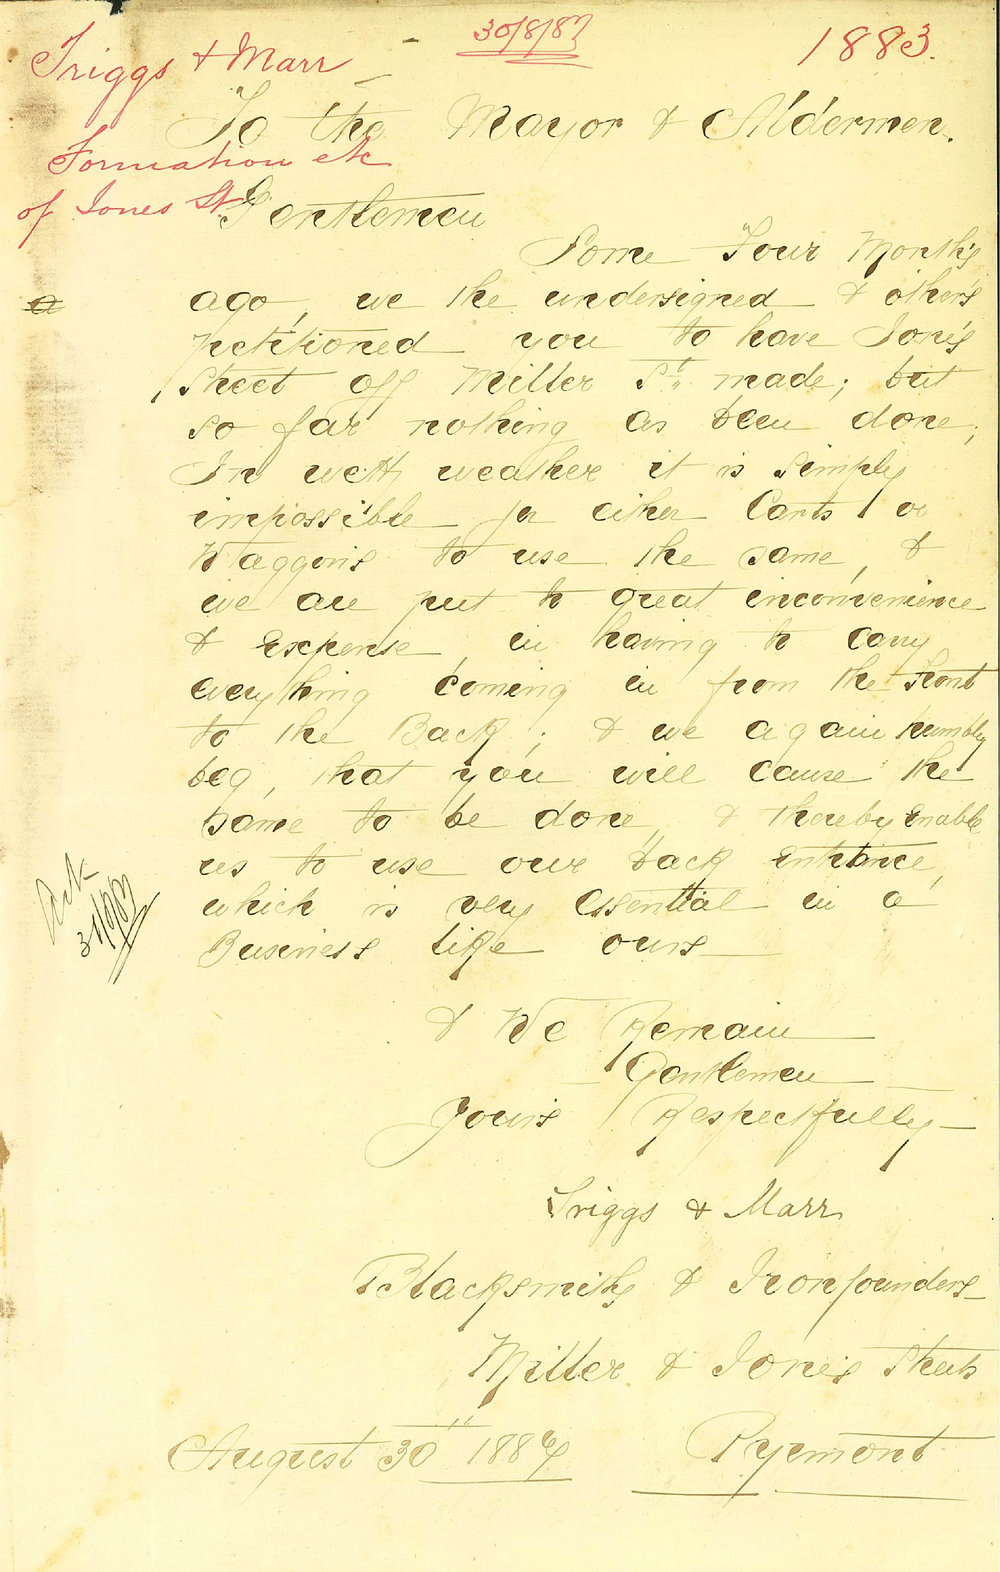 Triggs & Marr
30/8/87
1883.
To the Mayor & Aldermen.
Formation etc
of Jones St
Gentlemen
Some Four Months
ago, we the undersigned & others
petitioned you to have Jones
Street off Miller St. made; but
so far nothing as been done;
In wett weather it is simply
impossible for either Carts or
Waggons to use the same, &
we are put to great inconvenience
& Expense, in having to carry
everything coming in from the front
to the Back; & we again humbly
beg, that you will cause the
same to be done, & thereby Enable
us to use our back Entrance,
which is very Essential in a
Business like ours
Ack
31/8/87
& We Remain
Gentlemen
Yours Respectfully
Triggs & Marr
Blacksmiths & Ironfounders
Miller & Jones Streets
August 30" 1887
Pyrmont